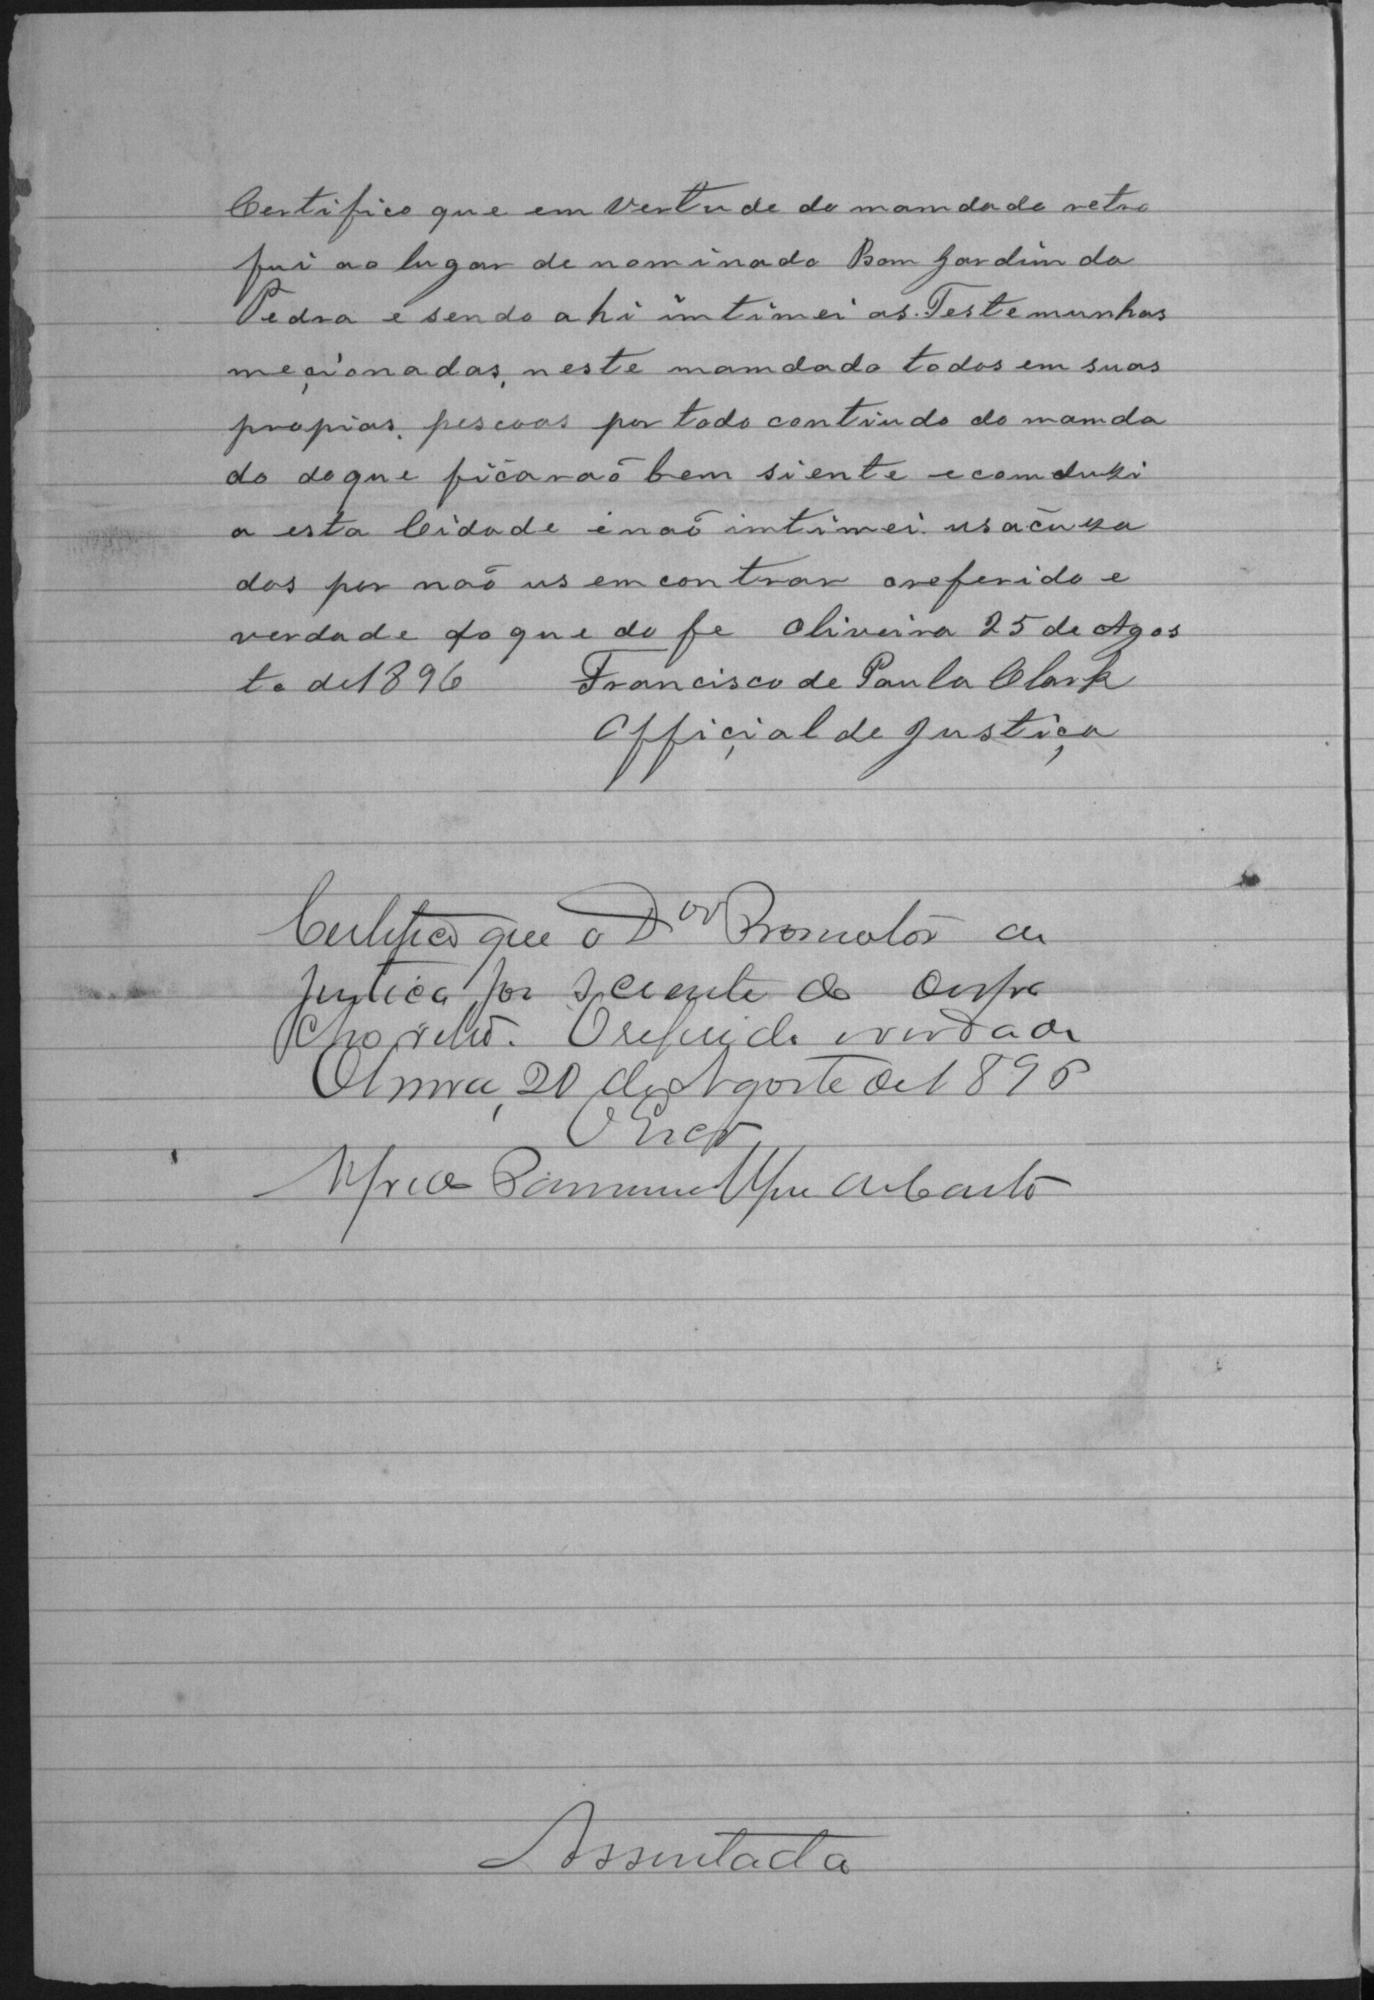 Certifico que em vertude do mamdado retro
fui ao lugar denominado Bom Jardim da
Pedra e sendo ahi imtimei as Testemunhas
meçionadas, neste mamdado todos em suas
propias pescoas por todo contiudo do mamda
do do que ficaraõ bem siente e comduzi
a esta Cidade e naõ imtimei us acuza
dos por naõ us emcontrar o referido e
verdade do que do fe Oliveira 25 de Agos
to de 1896 Francisco de Paula Clark
Offiçial de Justiça
Certifico que o Dor Promotor de
Justiça foi sciente do despa
cho retro. O referido é verdade
Olivrª, 20 de Agosto de 1896
O Escr
de Castro
Assentada